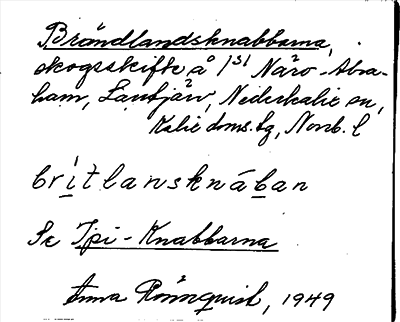 Brändlandsknabbarna,
skogsskifte å 1 st Näro-Abra-
ham, Lantjärv, Nederkalix sn,
Kalix doms.lg, Norrb. l
britlansknában
Se Ipi-Knabbarna
Anna Rönnquist, 1949